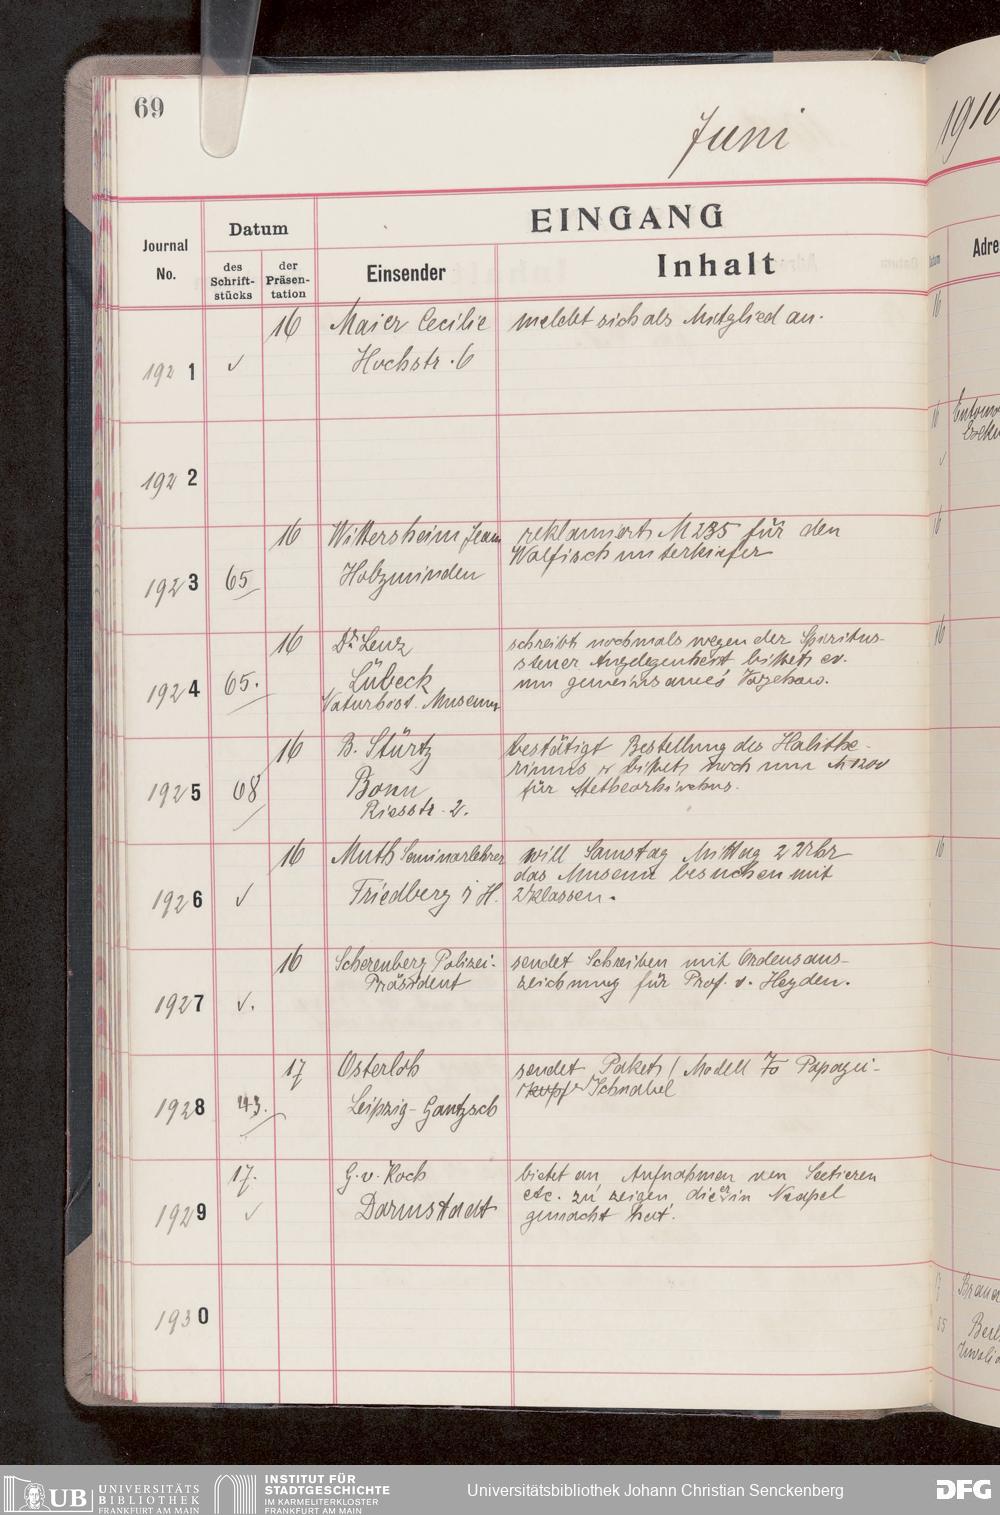 69
Juni
1910
Journal No.
Datum
des Schrift-stücks
der Präsen-tation
EINGANG
Einsender
Inhalt
Datum
Adre
1921 ✓ 16 Maier Cecilie meldet sich als Mitglied an.
Hochstr. 6
1922
16
1923 65 16 Wittersheim Jean reklamiert M 235 für den
Holzminden Walfischunterkiefer
1924 65. 16 Dr. Lenz schreibt nochmals wegen der Spiritus-
Lübeck steuer Angelegenheit bittet ev.
Naturhist. Museum um gemeinsames Vorgehen.
1925 68 16 B. Stürtz bestätigt Bestellung des Halithe-
Bonn riums bittet noch um M 1200
Riesstr. 2. für
1926 ✓ 16 Muth Seminarlehrer will Samstag Mittag 2 Uhr
Friedberg i H. das Museum besuchen mit
2 Klassen.
1927 ✓. 16 Scherenberg Polizei- sendet Schreiben mit Ordensaus-
Präsident zeichnung für Prof. v. Heyden.
1928 43. 17 Osterloh sendet Paket / Modell Papagei-
Leipzig-Gautzsch kopf Schnabel
1929 17. ✓ G. v. Koch bietet an Aufnahmen von Seetieren
Darmstadt etc. zu zeigen, die er in Neapel
gemacht hat.
1930
UB UNIVERSITÄTS
BIBLIOTHEK
FRANKFURT AM MAIN
INSTITUT FÜR
STADTGESCHICHTE
IM KARMELITERKLOSTER
FRANKFURT AM MAIN
Universitätsbibliothek Johann Christian Senckenberg
DFG